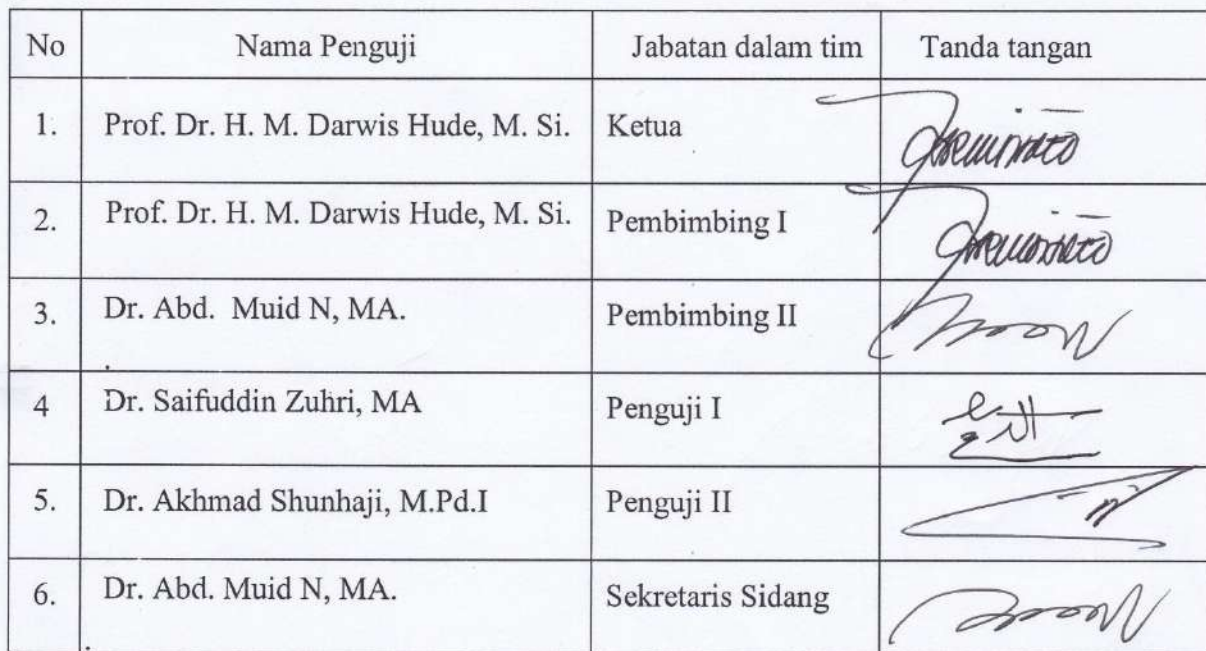 No Nama Penguji Jabatan dalam tim Tanda tangan
1. Prof. Dr. H. M. Darwis Hude, M. Si. Ketua
2. Prof. Dr. H. M. Darwis Hude, M. Si. Pembimbing I
3. Dr. Abd. Muid N, MA. Pembimbing II
.
4 Dr. Saifuddin Zuhri, MA Penguji I
5. Dr. Akhmad Shunhaji, M.Pd.I Penguji II
6. Dr. Abd. Muid N, MA. Sekretaris Sidang
.